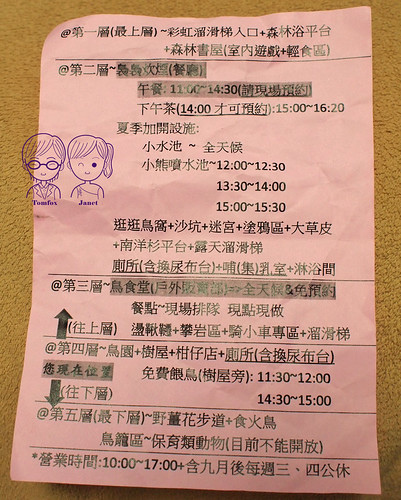 @第一層(最上層)~彩虹溜滑梯入口+森林浴平台
+森林書屋(室內遊戲+輕食區)
@第二層~裊裊炊煙(餐廳)
午餐: 11:00~14:30(請現場預約)
下午茶(14:00 才可預約):15:00~16:20
夏季加開設施:
小水池 ~ 全天候
小熊噴水池~12:00~12:30
13:30~14:00
15:00~15:30
Tomfox Janet
逛逛鳥窩+沙坑+迷宮+塗鴉區+大草皮
+南洋杉平台+露天溜滑梯
廁所(含換尿布台)+哺(集)乳室+淋浴間
@第三層~鳥食堂(戶外販賣部)=>全天候&免預約
餐點~現場排隊 現點現做
(往上層) 盪鞦韆+攀岩區+騎小車專區+溜滑梯
@第四層~鳥園+樹屋+柑仔店+廁所(含換尿布台)
您現在位置 免費餵鳥(樹屋旁): 11:30~12:00
(往下層) 14:30~15:00
@第五層(最下層)~野薑花步道+食火鳥
鳥籠區~保育類動物(目前不能開放)
*營業時間:10:00~17:00+含九月後每週三、四公休